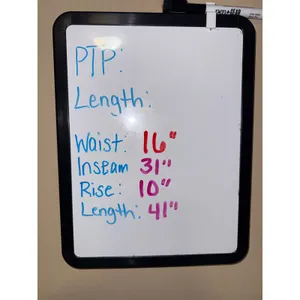 PTP:
Length:
Waist: 16"
Inseam 31"
Rise: 10"
Length: 41"